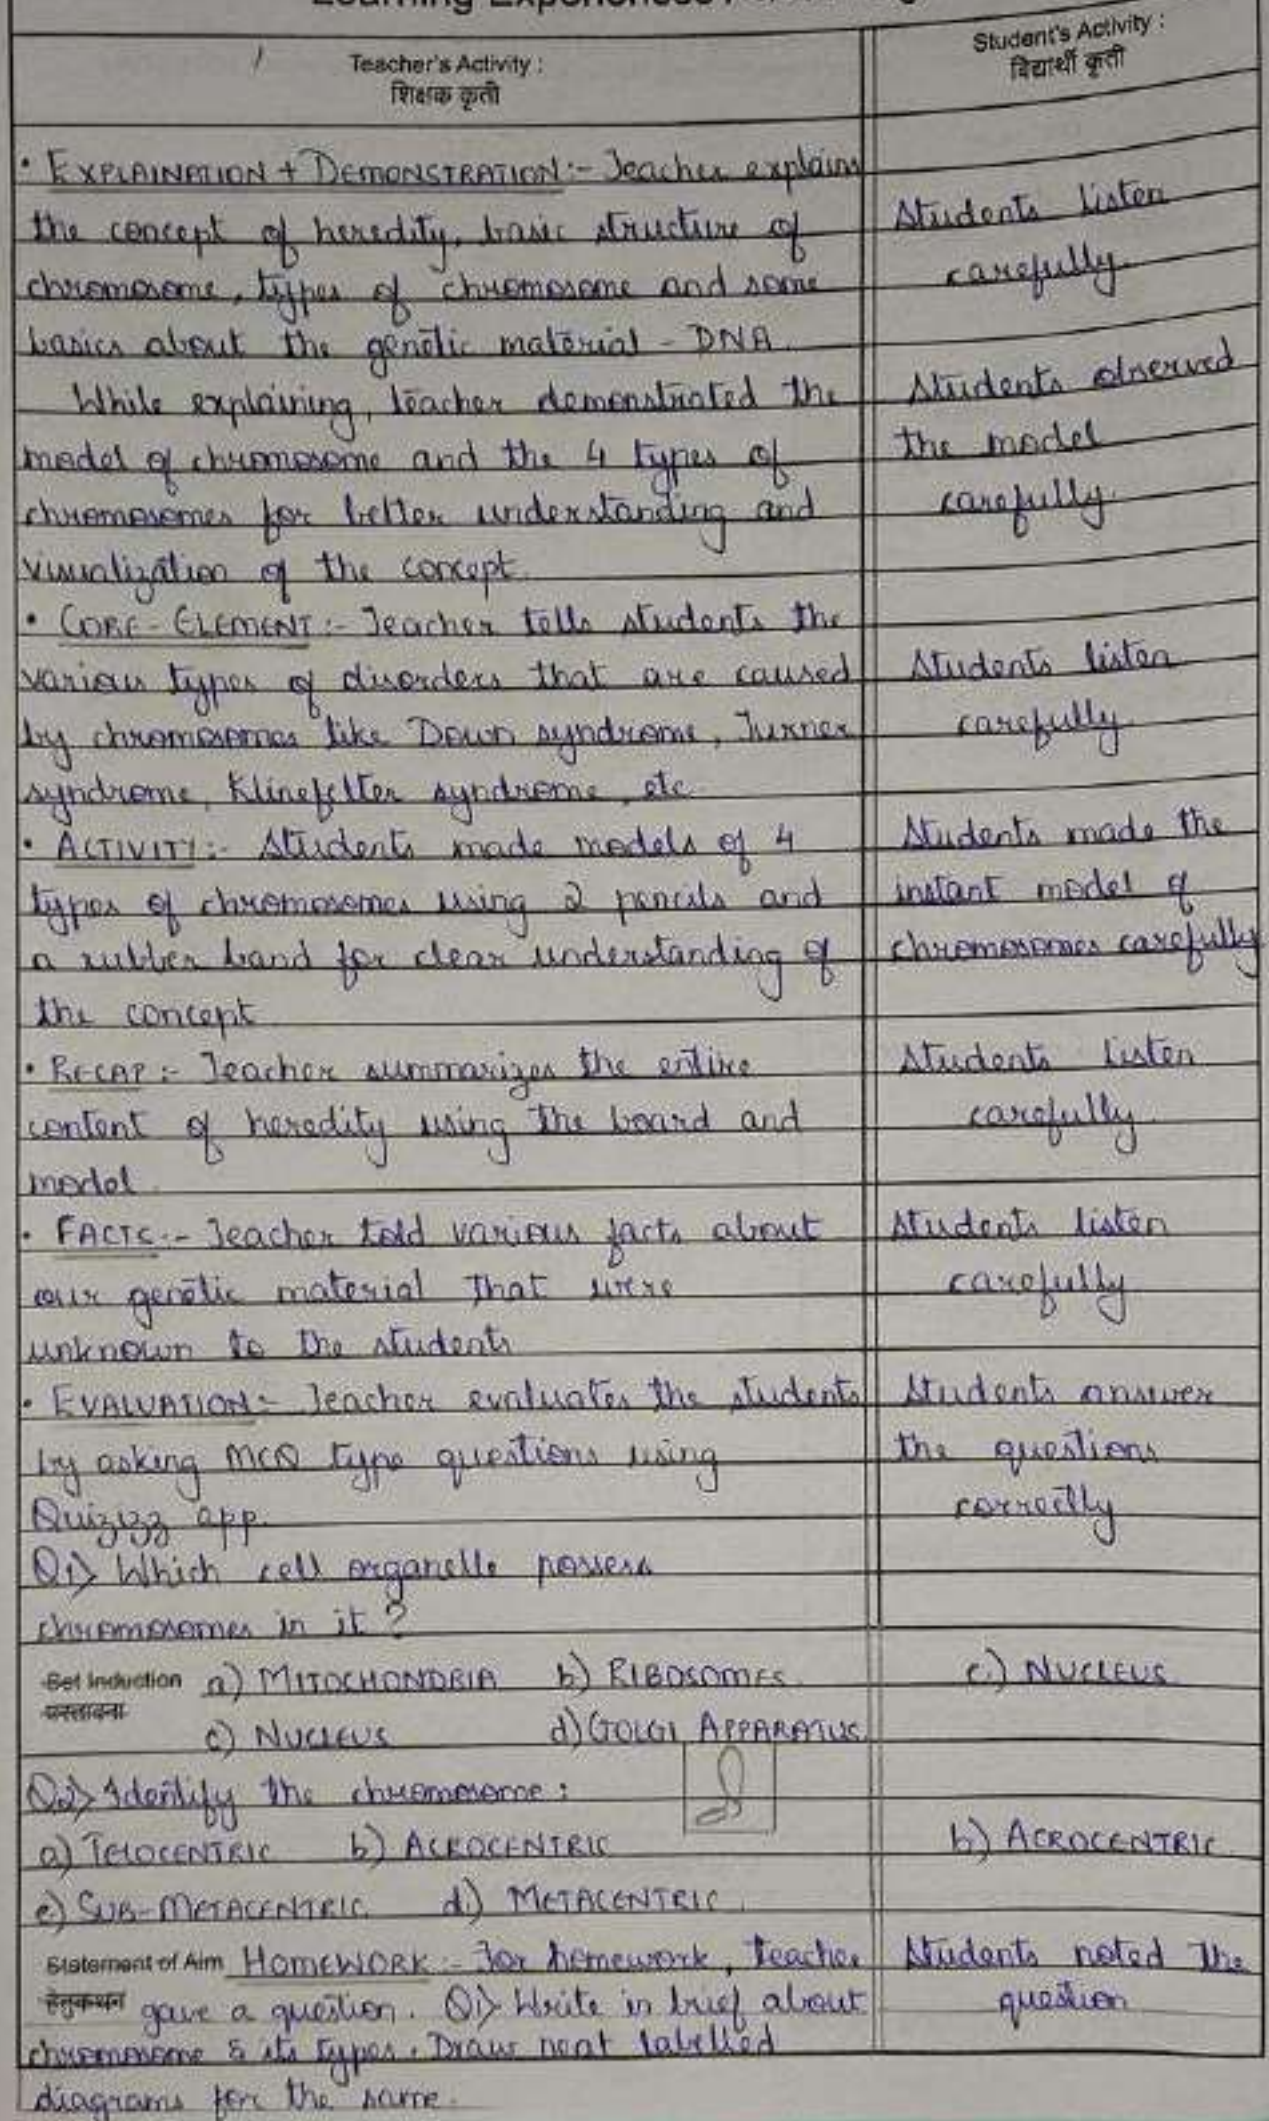 Teacher's Activity :
शिक्षक कृती
Student's Activity :
विद्यार्थी कृती
• EXPLAINATION + DEMONSTRATION :- Teacher explains
the concept of heredity, basic structure of
chromosome, types of chromosome and some
basics about the genetic material - DNA.
While explaining, teacher demonstrated the
model of chromosome and the 4 types of
chromosomes for better understanding and
visualization of the concept.
• CORE - ELEMENT :- Teacher tells students the
various types of disorders that are caused
by chromosomes like Down syndrome, Turner
syndrome, Klinefelter syndrome, etc.
• ACTIVITY :- Students made models of 4
types of chromosomes using 2 pencils and
a rubber band for clear understanding of
the concept
• RECAP :- Teacher summarizes the entire
content of heredity using the board and
model.
• FACTS :- Teacher told various facts about
our genetic material that were
unknown to the students
• EVALUATION :- Teacher evaluates the students
by asking MCQ type questions using
Quizizz app.
Q1) Which cell organelle possess
chromosomes in it ?
Set Induction a) MITOCHONDRIA b) RIBOSOMES.
प्रस्तावना
c) NUCLEUS d) GOLGI APPARATUS
Q2) Identify the chromosome :
a) TELOCENTRIC b) ACROCENTRIC
c) SUB-METACENTRIC d) METACENTRIC.
Statement of Aim HOMEWORK :- For homework, teacher
हेतुकथन gave a question. Q1) Write in brief about
chromosome & its types. Draw neat labelled
diagrams for the same.
Students listen
carefully.
Students observed
the model
carefully.
Students listen
carefully.
Students made the
instant model of
chromosomes carefully
Students listen
carefully.
Students listen
carefully
Students answer
the questions
correctly
c) NUCLEUS
b) ACROCENTRIC
Students noted the
question